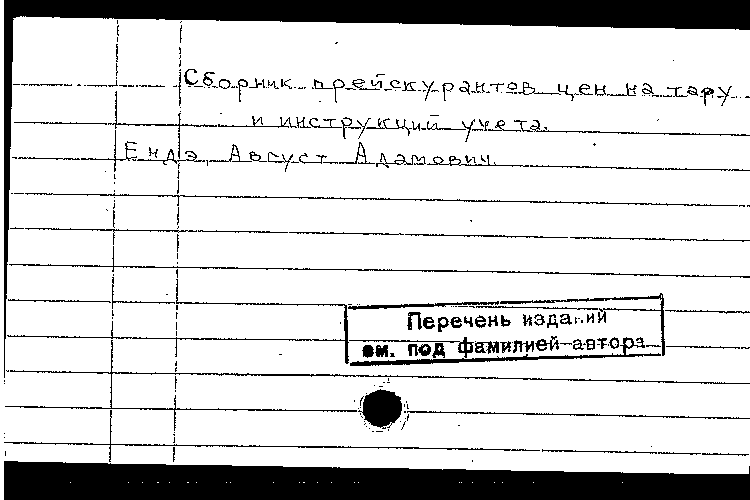 Сборник прейскурантов цен на тару
и инструкций учета.
Енда, Август Адамович.
Перечень изданий
см. под фамилией автора